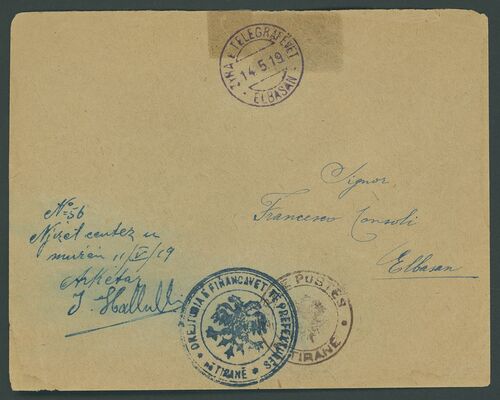 ZYRA E TELEGRAFËVET
14.5.19
· ELBASAN ·
Signor
Francesco Consoli
Elbasan
No 56
Njizet centez u
muarën 11/V/19
Arkëtaj
DREJTORIA E FINANCAVET TË PREFEKTURËS
në TIRANË
E POSTËS
TIRANË